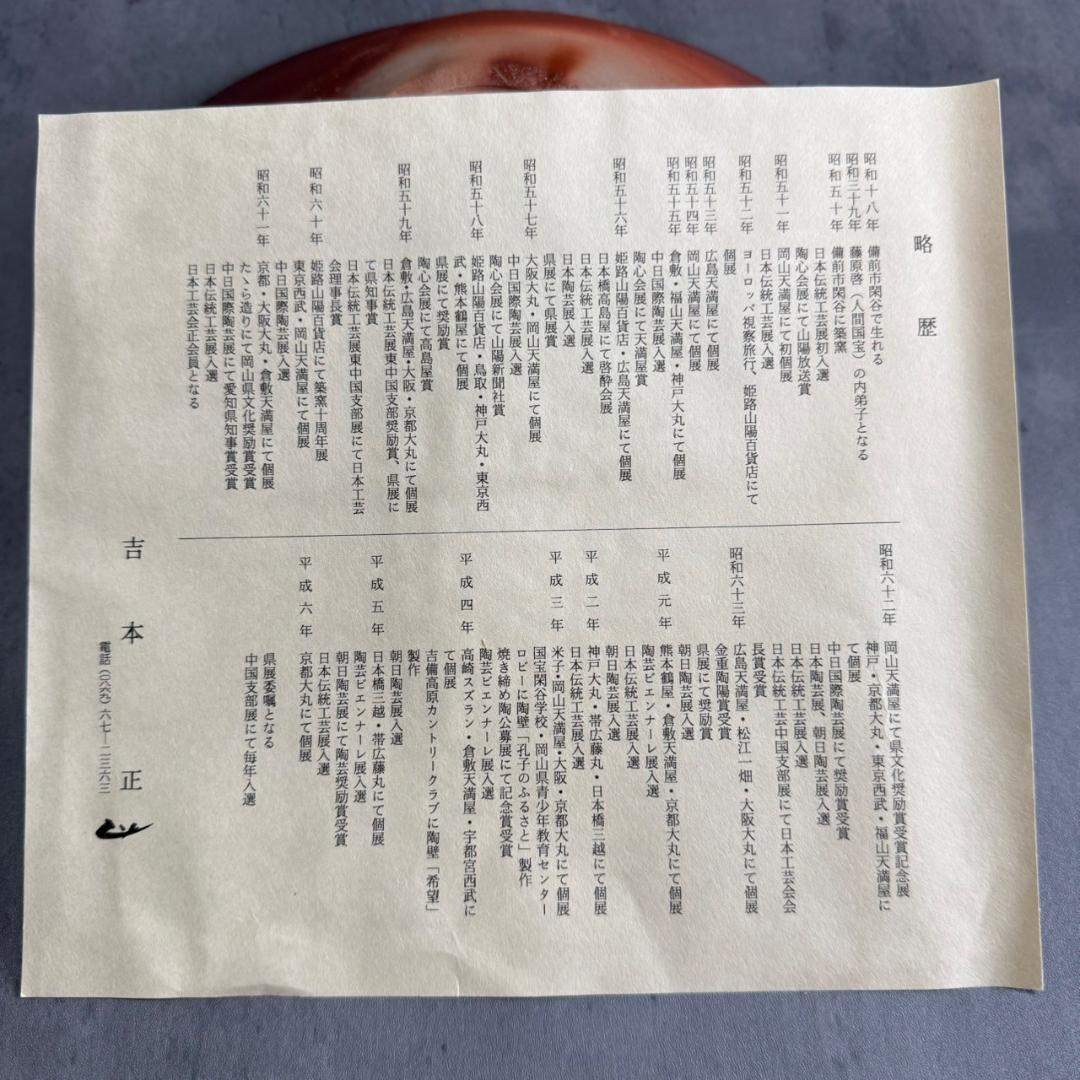 略歴
昭和十八年 備前市閑谷で生れる
昭和三十九年 藤原啓(人間国宝)の内弟子となる
昭和五十年 備前市閑谷に築窯
日本伝統工芸展初入選
陶心会展にて山陽放送賞
岡山天満屋にて初個展
昭和五十一年 日本伝統工芸展入選
昭和五十二年 ヨーロッパ視察旅行、姫路山陽百貨店にて
個展
昭和五十三年 広島天満屋にて個展
昭和五十四年 岡山天満屋にて個展
昭和五十五年 倉敷・福山天満屋・神戸大丸にて個展
中日国際陶芸展入選
陶心会展にて天満屋賞
昭和五十六年 姫路山陽百貨店・広島天満屋にて個展
日本橋高島屋にて啓酔会展
日本伝統工芸展入選
日本陶芸展入選
県展にて県展賞
昭和五十七年 大阪大丸・岡山天満屋にて個展
中日国際陶芸展入選
陶心会展にて山陽新聞社賞
昭和五十八年 姫路山陽百貨店・鳥取・神戸大丸・東京西
武・熊本鶴屋にて個展
県展にて奨励賞
陶心会展にて高島屋賞
昭和五十九年 倉敷・広島天満屋・大阪・京都大丸にて個展
日本伝統工芸展東中国支部奨励賞、県展に
て県知事賞
日本伝統工芸展東中国支部展にて日本工芸
会理事長賞
昭和六十年 姫路山陽百貨店にて築窯十周年展
東京西武・岡山天満屋にて個展
中日国際陶芸展入選
昭和六十一年 京都・大阪大丸・倉敷天満屋にて個展
たゝら造りにて岡山県文化奨励賞受賞
中日国際陶芸展にて愛知県知事賞受賞
日本伝統工芸展入選
日本工芸会正会員となる
昭和六十二年 岡山天満屋にて県文化奨励賞受賞記念展
神戸・京都大丸・東京西武・福山天満屋に
て個展
中日国際陶芸展にて奨励賞受賞
日本陶芸展、朝日陶芸展入選
日本伝統工芸展入選
日本伝統工芸中国支部展にて日本工芸会会
長賞受賞
昭和六十三年 広島天満屋・松江一畑・大阪大丸にて個展
金重陶陽賞受賞
県展にて奨励賞
朝日陶芸展入選
平成元年 熊本鶴屋・倉敷天満屋・京都大丸にて個展
陶芸ビエンナーレ展入選
日本伝統工芸展入選
朝日陶芸展入選
平成二年 神戸大丸・帯広藤丸・日本橋三越にて個展
日本伝統工芸展入選
平成三年 米子・岡山天満屋・大阪・京都大丸にて個展
国宝閑谷学校・岡山県青少年教育センター
ロビーに陶壁「孔子のふるさと」製作
焼き締め陶公募展にて記念賞受賞
陶芸ビエンナーレ展入選
平成四年 高崎スズラン・倉敷天満屋・宇都宮西武に
て個展
吉備高原カントリークラブに陶壁「希望」
製作
朝日陶芸展入選
平成五年 日本橋三越・帯広藤丸にて個展
陶芸ビエンナーレ展入選
朝日陶芸展にて陶芸奨励賞受賞
日本伝統工芸展入選
平成六年 京都大丸にて個展
県展委嘱となる
中国支部展にて毎年入選
吉本正
電話(〇八六九)六七-二三六三